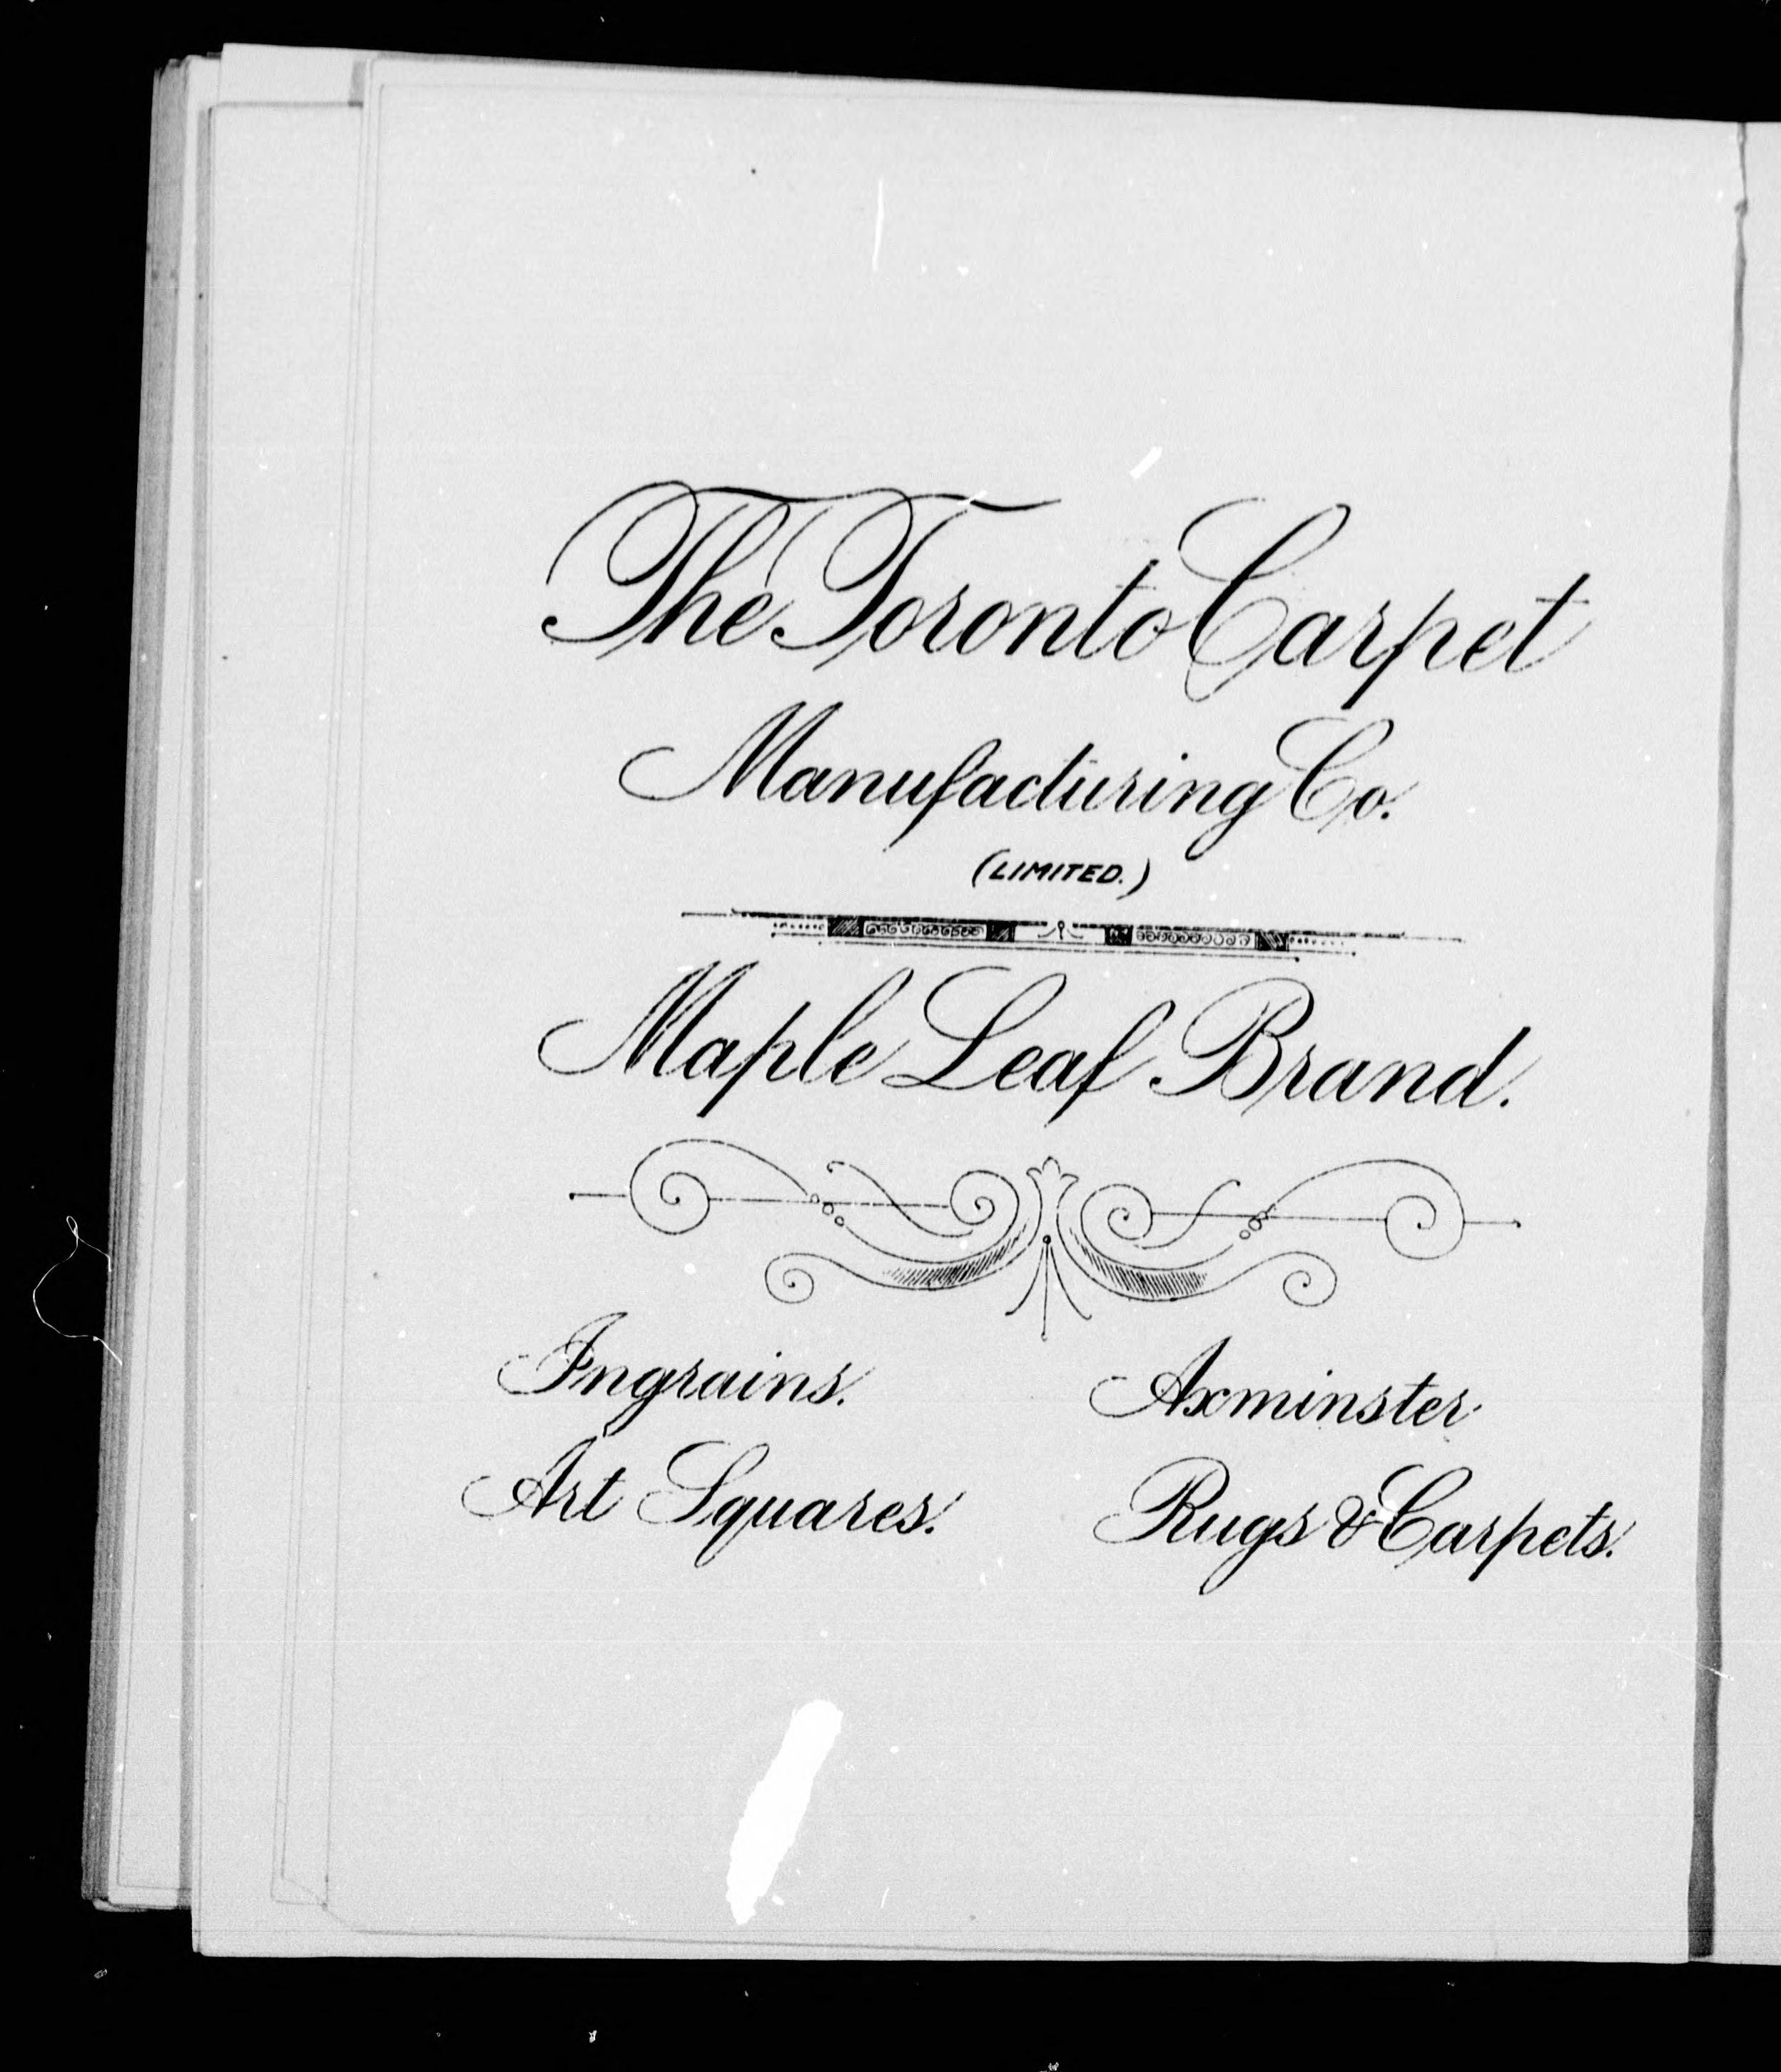 The Toronto Carpet
Manufacturing Co.
(LIMITED.)
Maple Leaf Brand.
Ingrains.
Art Squares.
Axminster
Rugs & Carpets.